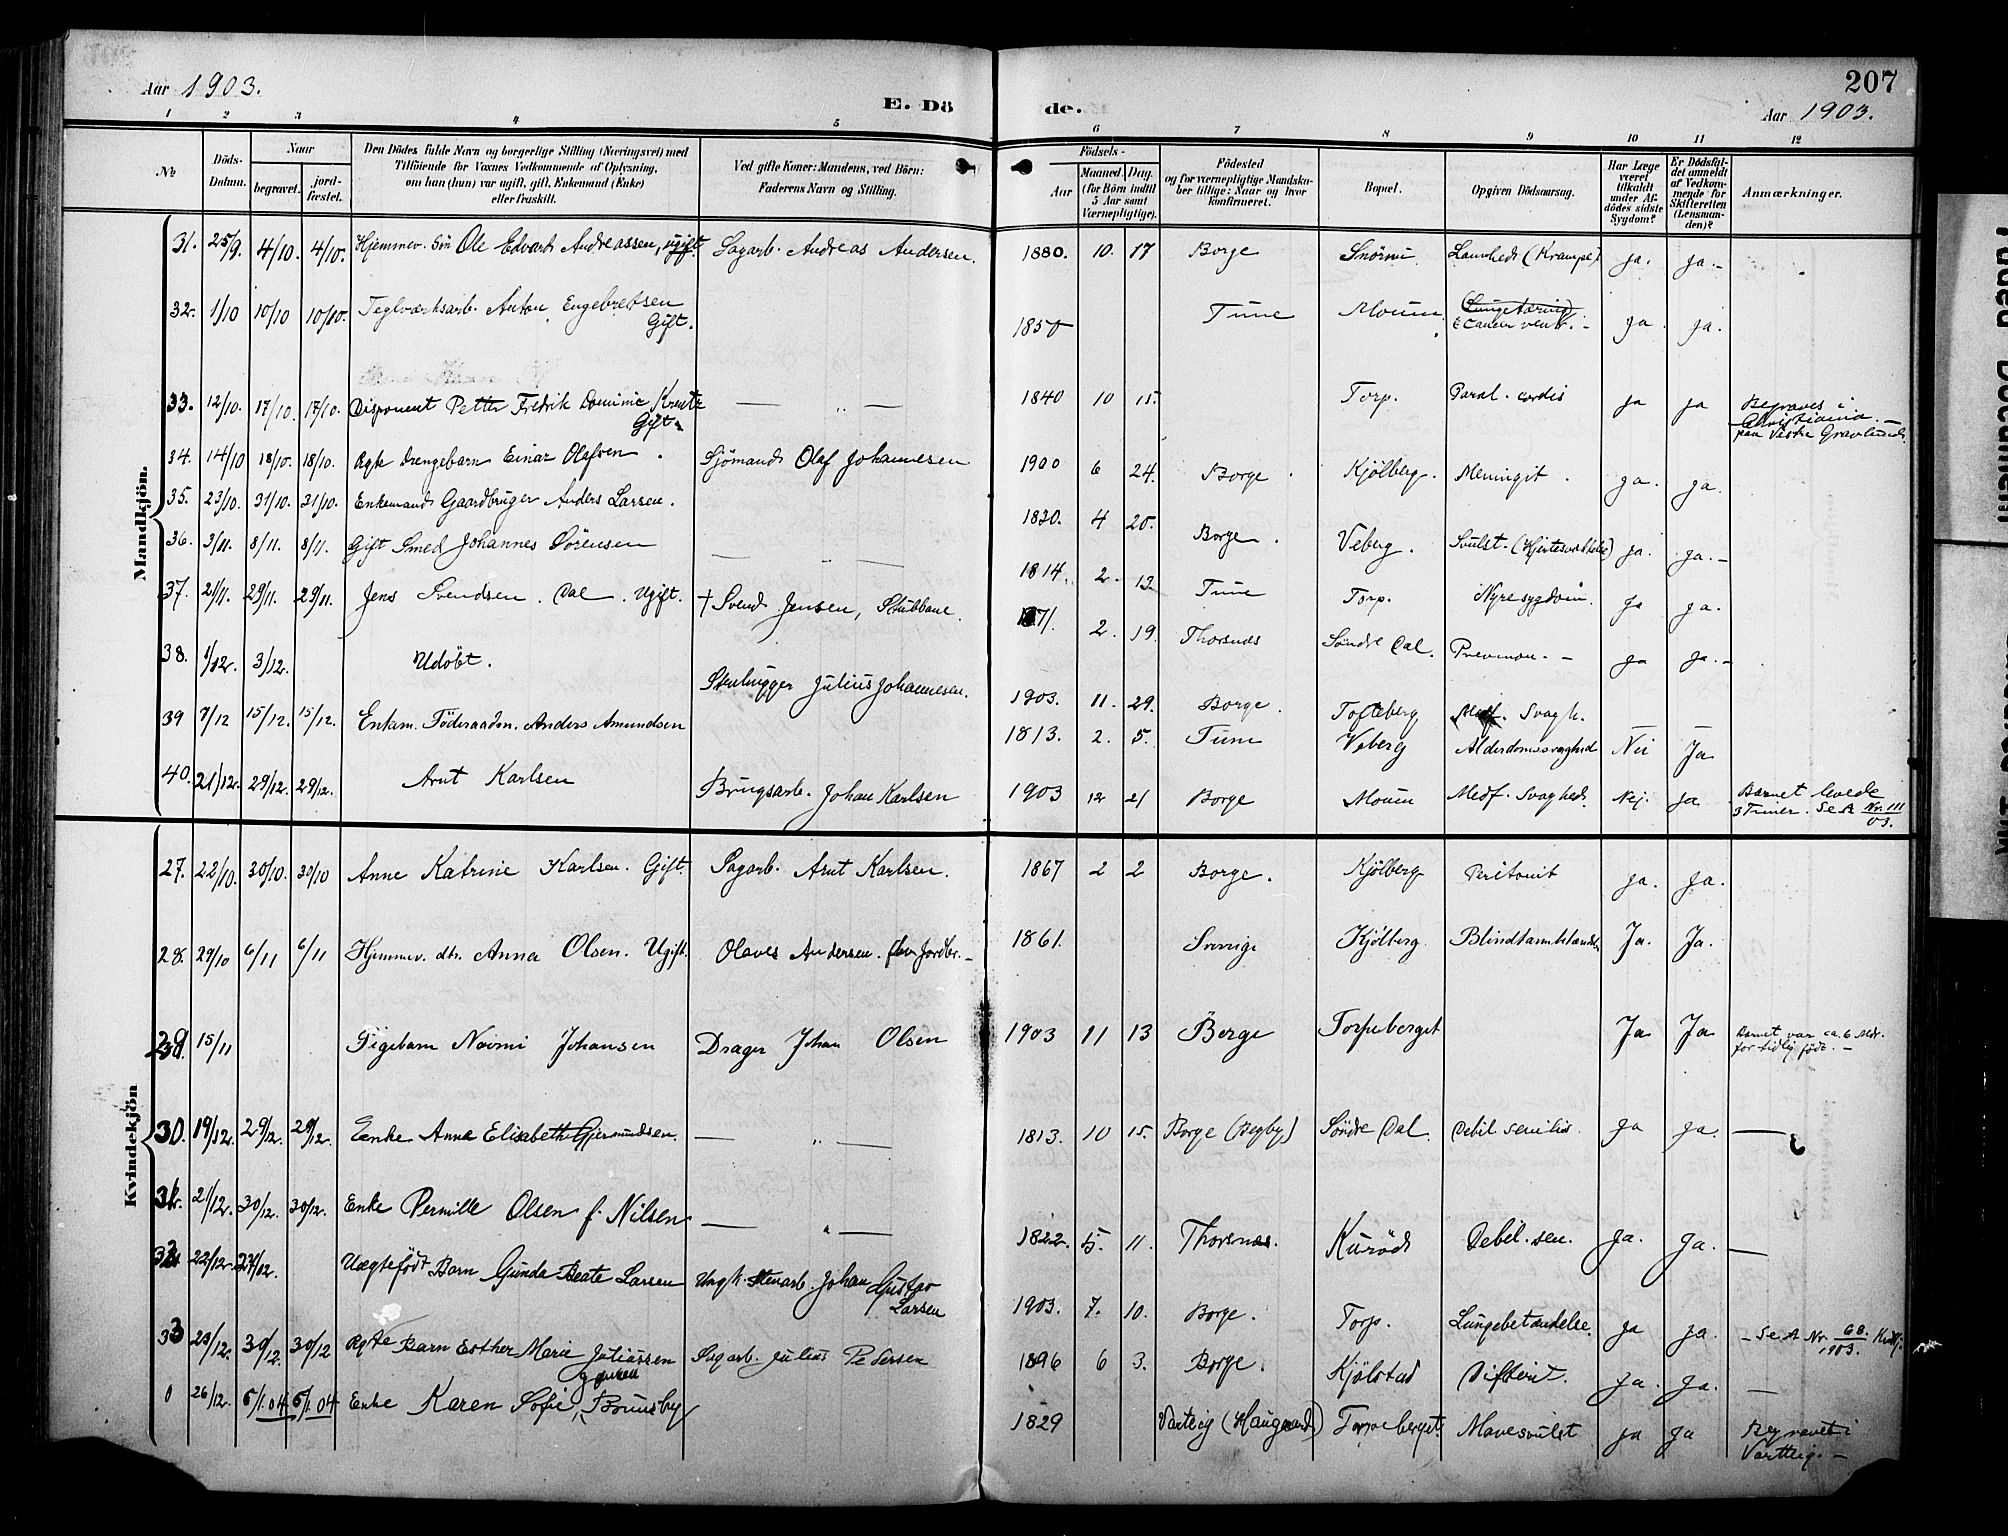 Aar 1903.
E. Dö
de.
207
Aar 1903.
1 2 3 4 5 6 7 8 9 10 11 12
No
Döds-Datum.
Naar
begravet.
jord-fæstet.
Den Dödes fulde Navn og borgerlige Stilling (Næringsvei) med
Tilföiende for Voxnes Vedkommende af Oplysning,
om han (hun) var ugift, gift, Enkemand (Enke)
eller fraskilt.
Ved gifte Koner: Mandens, ved Börn:
Faderens Navn og Stilling.
Födsels-
Aar
Maaned. Dag.
(for Börn indtil
5 Aar samt
Værnepligtige).
Födested
og for værnepligtige Mandska-
ber tillige: Naar og hvor
konfirmeret.
Bopæl.
Opgiven Dödsaarsag.
Har Læge
været
tilkaldt
under Af-
dödes sidste
Sygdom?
Er Dödsfal-
det anmeldt
af Vedkom-
mende for
Skifteretten
(Lensman-
den)?
Anmærkninger.
Mandkjön.
31. 25/9. 4/10. 4/10. Hjemmev. Sön Ole Edvart Andreassen, ugift. Sagarb. Andreas Andersen. 1880. 10. 17 Borge Lamhed (Krampe) ja. ja.
32. 1/10 10/10 10/10. Teglværksarb. Anton Engebretsen Gift. 185 Tune Moum Lungetæring Cancer ventr. ja ja.
33. 12/10. 17/10. 17/10. Disponent Petter Fredrik Dominic Gift. — „ — 1840 10 15. Torp. Paral. cordis ja ja Begraves i Christiania paa Vestre Gravlund.
34. 14/10 18/10. 18/10. Ægte Drengebarn Einar Olafsen. Sjömand Olaf Johannesen 1900 6 24. Borge Kjölberg. Meningit ja. ja.
35. 23/10. 31/10. 31/10. Enkemand Gaardbruger Anders Larsen. 1830. 4 20. Borge. Veberg. Svulst ja. ja.
36. 3/11. 8/11. 8/11. Gift Smed Johannes Sörensen — „ — 1814. 2. 13. Tune Torp. Nyresygdom. ja ja.
37. 2/11. 29/11. 29/11. Jens Svendsen Dal. Ugift. † Svend Jensen, Stubbane. 2. 19. Thorsnæs Söndre Dal. ja ja.
38. 1/12. 3/12. Udöbt. Stenhugger Julius Johannesen. 1903. 11. 29. Borge. Tofteberg Medf. Svagh.
39 7/12 15/12. 15/12. Enkem. Föderaadsm. Anders Amundsen 1813. 2. 5. Tune Veberg Alderdomssvaghed Nei Ja
40. 21/12. 29/12. 29/12. Arnt Karlsen Brugsarb. Johan Karlsen 1903 12 21 Borge Moum Medf. Svaghed. Nej. ja Barnet levede 3 Timer. Se A Nr. 111/03.
Kvindekjön
27. 22/10. 30/10. 30/10 Anne Katrine Karlsen. Gift. Sagarb. Arnt Karlsen. 1867 2 2 Borge. Kjölberg Peritonit ja. ja.
28. 29/10 6/11 6/11 Hjemmev. dtr. Anna Olsen. Ugift. Olaves Andersen. 1861. Sverige Kjölberg Ja. Ja.
29 15/11 Pigebarn Noomi Johansen Drager Johan Olsen 1903 11 13 Borge Torpeberget Ja Ja Barnet var ca. 6 Mdr. for tidlig født. —
30. 19/12. 29/12. 29/12. Enke Anne Elisabeth Gjermundsen. — „ — 1813. 10 15. Borge (Begby) Söndre Dal. Debil. senilis. ja ja. —
31. 21/12. 30/12. 30/12. Enke Pernille Olsen f. Nilsen — „ — 1822. 5. 11. Thorsnæs. Kuröd Debil. sen. ja. ja. —
32 22/12. 27/12. Uægtefödt Barn Gunda Beate Larsen Ungk. Stenarb. Johan Gustav Larsen 1903. 7. 10. Borge. Torp. Lungebetændelse. ja ja. — Se A Nr. 68/1903. Kvkj.
33 23/12. 30/12. 30/12 Ægte Barn Esther Marie Juliussen Sagarb. Julius Pedersen 1896 6 3. Borge. Kjölstad Difterit. ja. ja. —
0 26/12. 5/1.04 5/1.04 Enke Karen Sofie Brunsby 1829 Varteig (Haugaard) Torpeberget. Mavesvulst ja ja Begravet i Vartteig. —